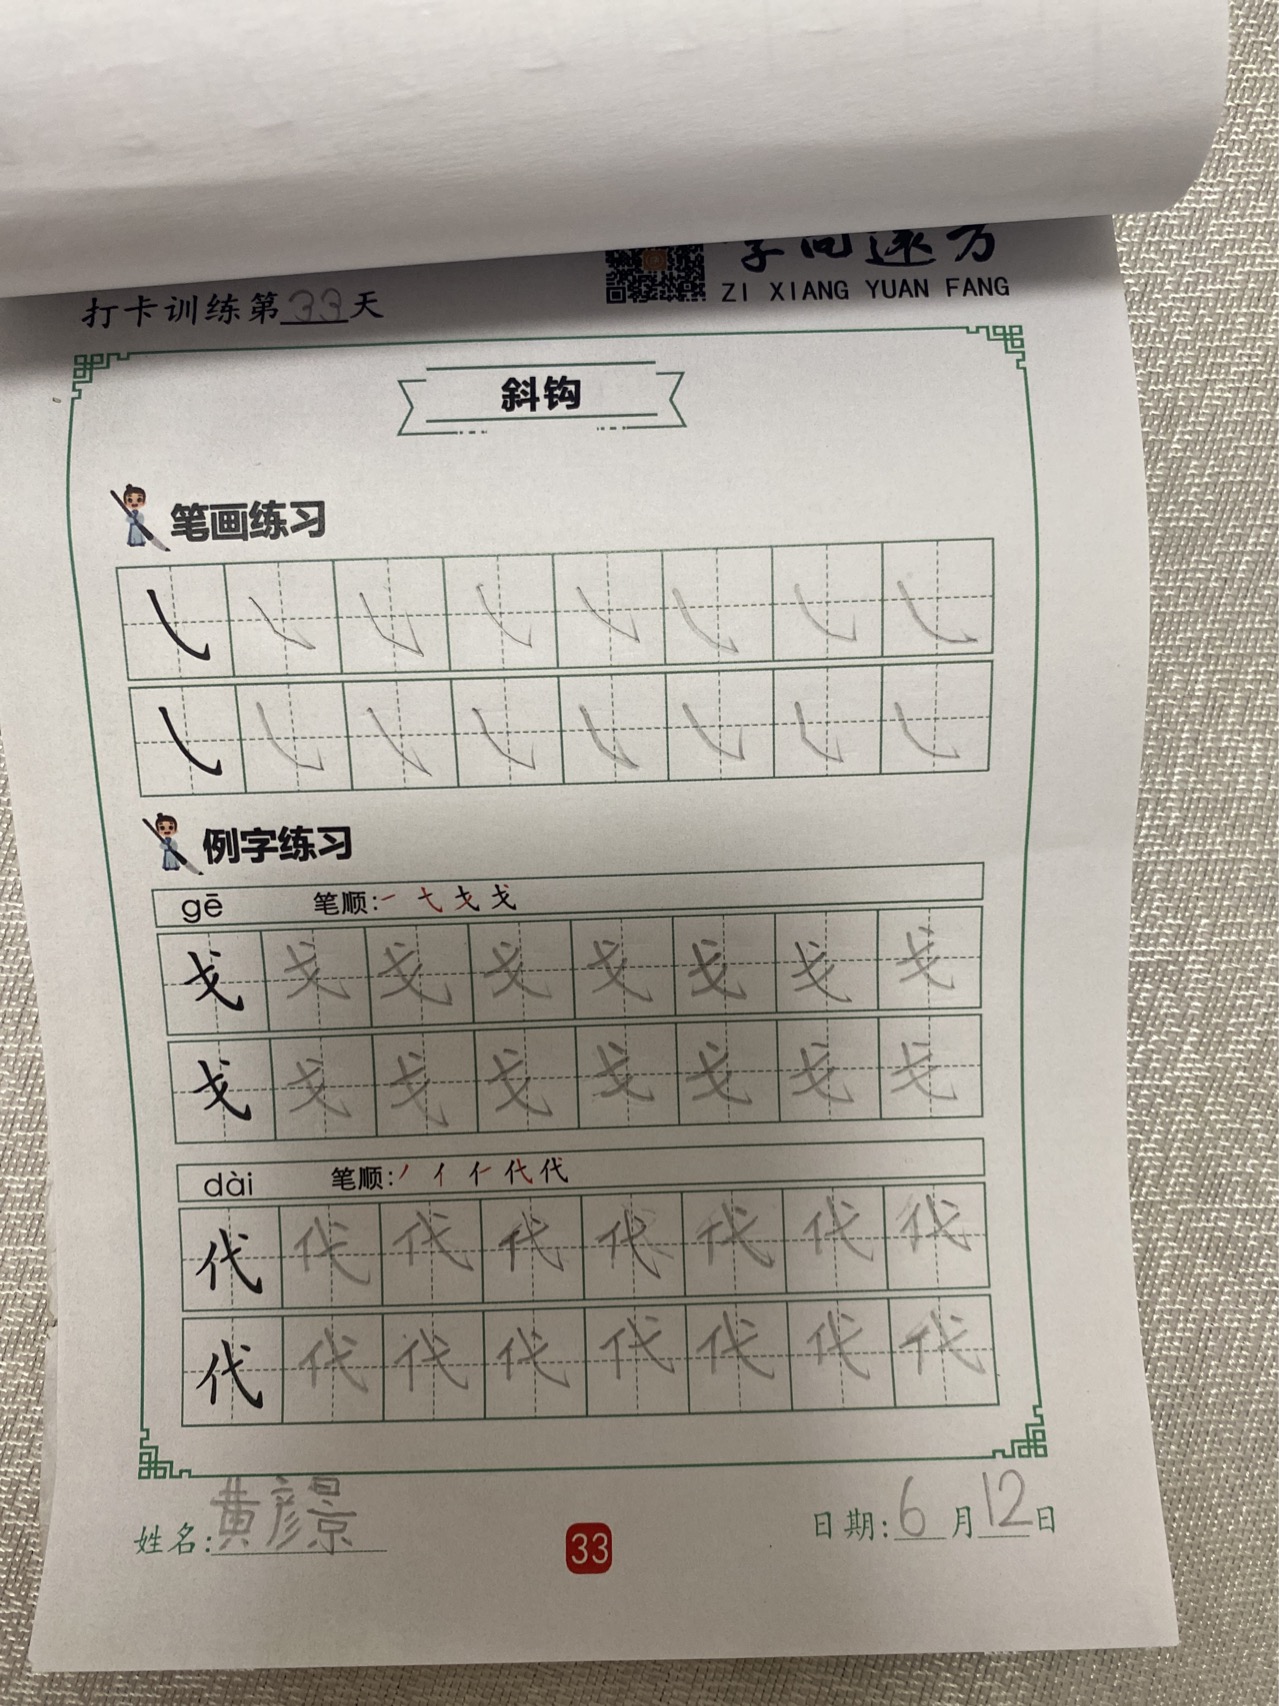 字向远方
ZI XIANG YUAN FANG
打卡训练第33天
斜钩
笔画练习
例字练习
gē 笔顺:一 弋 戈 戈
戈 戈 戈 戈 戈 戈 戈 戈
戈 戈 戈 戈 戈 戈 戈 戈
dài 笔顺:丿 亻 仁 代 代
代 代 代 代 代 代 代 代
代 代 代 代 代 代 代 代
姓名:黄彦景
33
日期:6月12日